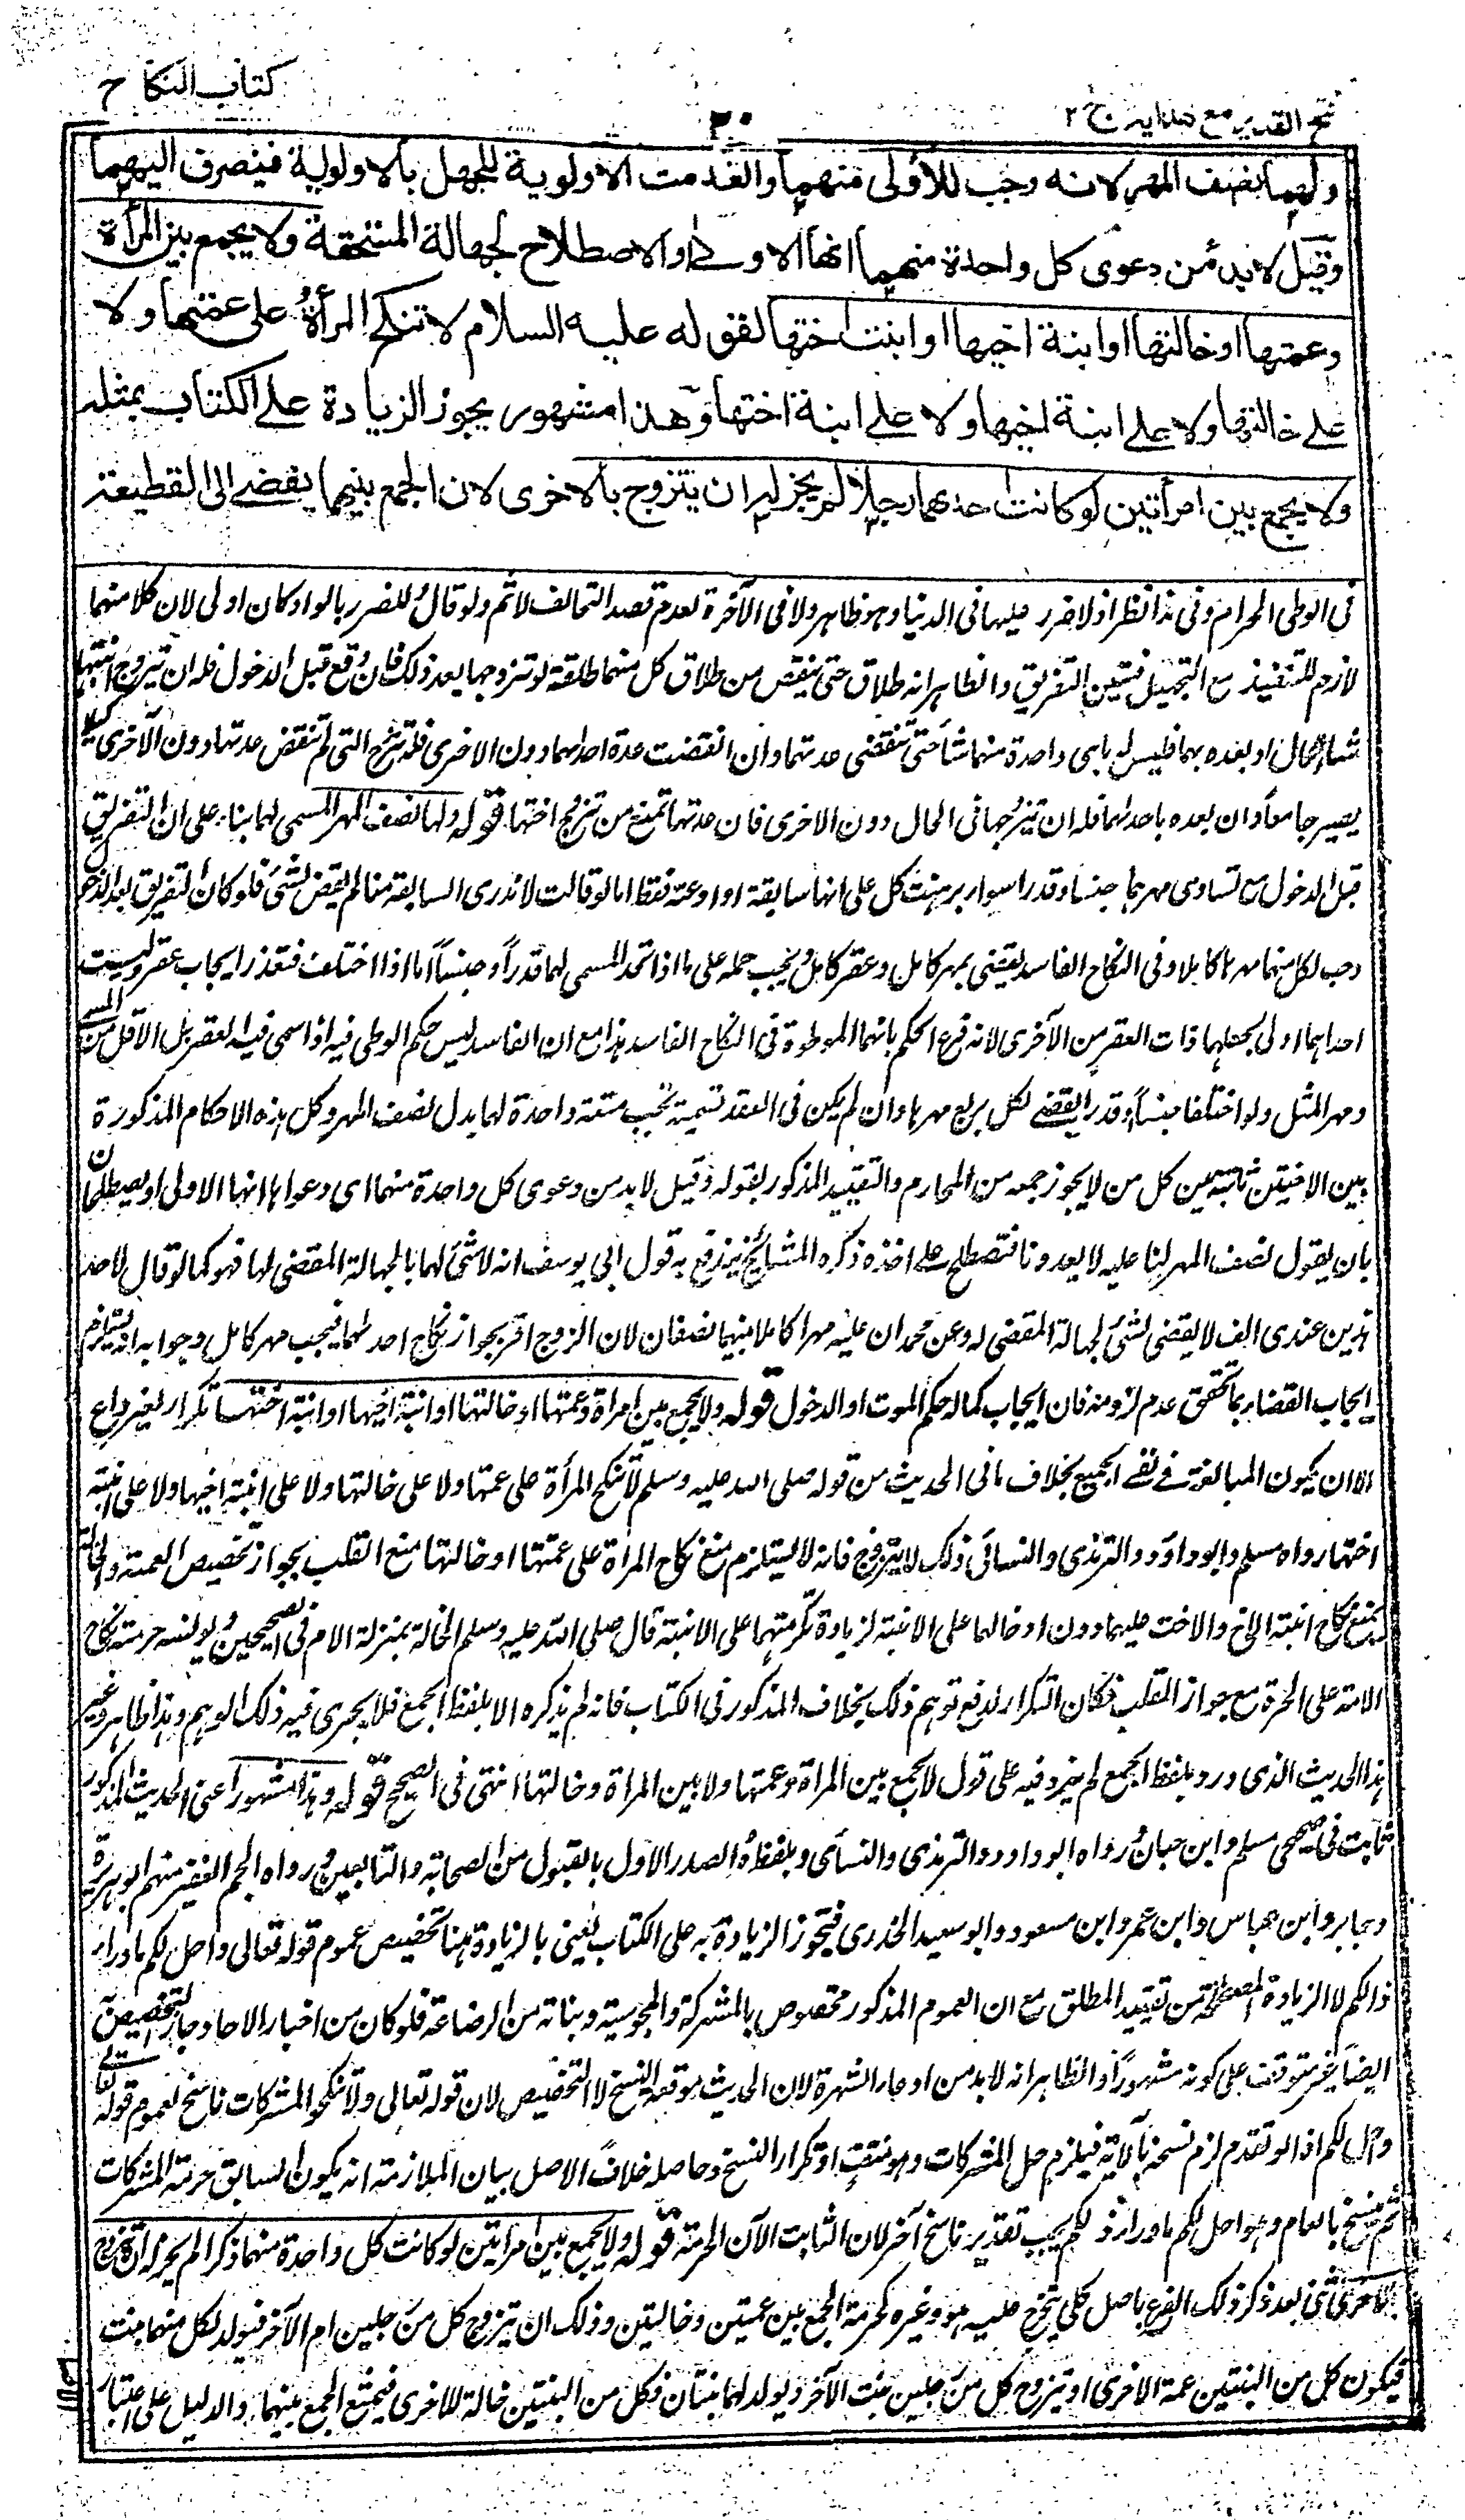 كتاب النكاح
فتح القدير مع هدايه ج ٢
٢٠
ولهما نصف المهر لانه وجب للأولى منهما وانعدمت الاولوية للجهل بالاولوية فينصرف اليهما
وقيل لابد من دعوى كل واحدة منهما انها الاولى او الاصطلاح لجهالة المستحقة ولا يجمع بين المرأة
وعمتها او خالتها او ابنة اخيها او ابنت اختها لقوله عليه السلام لا تنكح المرأة على عمتها ولا
على خالتها ولا على ابنة اخيها ولا على ابنة اختها وهذا مشهور يجوز الزيادة على الكتاب بمثله
ولا يجمع بين امرأتين لو كانت احدهما رجلا لم يجز له ان يتزوج بالاخرى لان الجمع بينهما يفضى الى القطيعة
فى الوطى الحرام وفى هذا نظر اذ لا ضرر عليها فى الدنيا وهو ظاهر ولا فى الآخرة لعدم قصد التحالف لاثم ولو قال للضرر بالواو كان اولى لان كلا منهما
لازم للتنفيذ مع التجهيل فتعين التفريق والظاهر انه طلاق حتى ينقص من طلاق كل منهما طلقة لو تزوجها بعد ذلك فان وقع قبل الدخول فله ان يتزوج ايتهما
شاء للحال او بعده بهما فليس له باى واحدة منهما شاء حتى تنقضى عدتهما وان انقضت عدة احداهما دون الاخرى فله تزوج التى لم تنقض عدتها دون الآخرى كيلا
يصير جامعا وان بعده باحداهما فله ان يتزوجها فى الحال دون الاخرى فان عدتها تمنع من تزوج اختها قوله ولهما نصف المهر المسمى لهما بناء على ان التفريق
قبل الدخول مع تساوى مهريهما جنسا وقدرا سواء برهنت كل على انها سابقة او ادعته فقط اما لو قالت لا ندرى السابقة منا لم يقض لشئ فلو كان التفريق بعد الدخول
وجب لكل منهما مهرها كاملا وفى النكاح الفاسد يقضى بمهر كامل وعقر كامل ويجب حمله على ما اذا اتحد المسمى لهما قدرا وجنسا اما اذا اختلف فتعذر ايجاب عقر وليست
احداهما اولى بجعلها ذات العقر من الآخرى لانه فرع الحكم بانها الموطوءة فى النكاح الفاسد هذا مع ان الفاسد ليس حكم الوطى فيه اذا سمى فيه العقر بل الاقل من المسمى
ومهر المثل ولو اختلفا جنسا وقدرا يقضى لكل بربع مهرها وان لم يكن فى العقد تسمية تجب متعة واحدة لهما بدل نصف المهر وكل هذه الاحكام المذكورة
بين الاختين ثابتة بين كل من لا يجوز جمعه من المحارم والتقييد المذكور بقوله وقيل لابد من دعوى كل واحدة منهما اى دعواها انها الاولى او يصطلحان
بان يقول نصف المهر لنا عليه لا يعدونا فنصطلح على اخذه ذكره المشائخ يندفع به قول ابى يوسف انه لا شئ لهما بالجهالة المقضى لها فهو كما لو قال لاحد
هذين عندى الف لا يقضى لشئ لجهالة المقضى له وعن محمد ان عليه مهرا كاملا بينهما نصفان لان الزوج اقر بجواز نكاح احداهما فيجب مهر كامل وجوابه انه يستلزم
ايجاب القضاء بما تحقق عدم لزومه فان ايجاب كماله حكم الموت او الدخول قوله ولا يجمع بين امراة وعمتها او خالتها او ابنة اخيها او ابنة اختها تكرار لغير داع
الا ان يكون المبالغة فى نفى الجمع بخلاف ما فى الحديث من قوله صلى الله عليه وسلم لا تنكح المرأة على عمتها ولا على خالتها ولا على ابنة اخيها ولا على ابنة
اختها رواه مسلم وابو داود والترمذى والنسائى ذلك لا يتزوج فانه لا يستلزم منع نكاح المراة على عمتها او خالتها منع القلب بجواز تخصيص العمة والخالة
بمنع نكاح ابنة الاخ والاخت عليهما دون ادخالهما على الابنة لزيادة تكرمتهما على الابنة قال صلى الله عليه وسلم الخالة بمنزلة الام فى الصحيحين يؤنسه حرمة نكاح
الامة على الحرة مع جواز القلب فكان التكرار لدفع توهم ذلك بخلاف المذكور فى الكتاب فانه لم يذكره الا بلفظ الجمع فلا يجرى فيه ذلك الوهم وهذا ظاهر وغير
هذا الحديث الذى ورد بلفظ الجمع لم يزد فيه على قول لا يجمع بين المراة وعمتها ولا بين المراة وخالتها انتهى فى الصحيح قوله وهذا مشهور اعنى الحديث المذكور
ثابت فى صحيحى مسلم وابن حبان رواه ابو داود والترمذى والنسائى وبلفظه الصدر الاول بالقبول من الصحابة والتابعين ورواه الجم الغفير منهم ابو هريرة
وجابر وابن عباس وابن عمر وابن مسعود وابو سعيد الخدرى فيجوز الزيادة به على الكتاب يعنى بالزيادة هنا تخصيص عموم قوله تعالى واحل لكم ما وراء
ذالكم لا الزيادة المصطلحة من تقييد المطلق مع ان العموم المذكور مخصوص بالمشركة والمجوسية وبناته من الرضاعة فلو كان من اخبار الاحاد جاز التخصيص به
ايضا غير متوقف على كونه مشهورا والظاهر انه لابد من ادعاء الشهرة لان الحديث موقعه النسخ لا التخصيص لان قوله تعالى ولا تنكحوا المشركات ناسخ لعموم قوله تعالى
واحل لكم اذ لو تقدم لزم نسخه بالآية فيلزم حل المشركات وهو منتف او تكرار النسخ وحاصله خلاف الاصل بيان الملازمة انه يكون السابق حرمة المشركات
ثم ينسخ بالعام وهو احل لكم ما وراء ذلكم يجب تقدير ناسخ آخر لان الثابت الآن الحرمة قوله ولا يجمع بين امرأتين لو كانت كل واحدة منهما ذكرا لم يجز له ان يتزوج
بالاخرى ثنى بعد ذكر ذلك الفرع باصل كلى يتخرج عليه هو وغيره كحرمة الجمع بين عمتين وخالتين وذلك ان يتزوج كل من رجلين ام الآخر فيولد لكل منهما بنت
فيكون كل من البنتين عمة الاخرى او يتزوج كل من رجلين بنت الآخر ويولد لهما بنتان فكل من البنتين خالة للاخرى فيمتنع الجمع بينهما والدليل على اعتبار